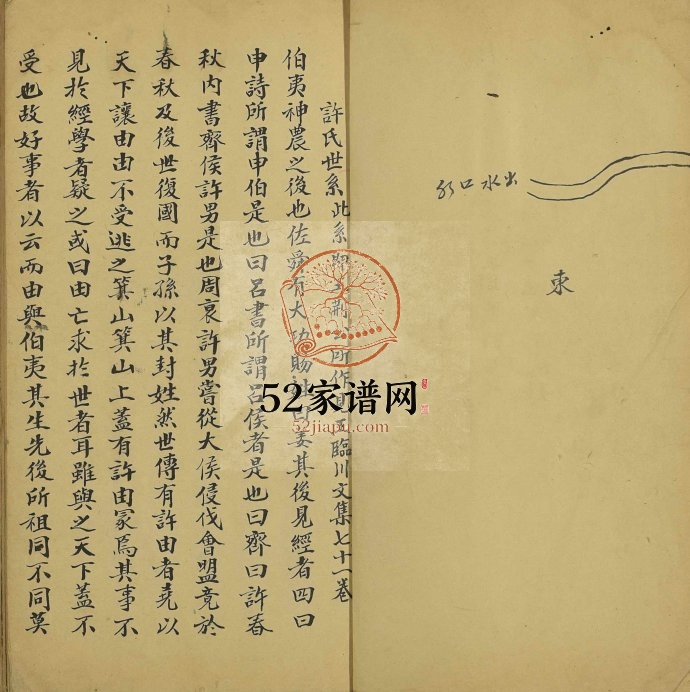 出水口
東
許氏世系此系所作見臨川文集七十一卷
伯夷神農之後也佐舜有大功賜姓曰姜其後見經者四曰
申詩所謂申伯是也曰呂書所謂呂侯者是也曰齊曰許春
秋內書齊侯許男是也周衰許男嘗從大侯侵伐會盟竟於
春秋及後世復國而子孫以其封姓然世傳有許由者堯以
天下讓由由不受逃之箕山箕山上蓋有許由冢焉其事不
見於經學者疑之或曰由亡求於世者耳雖與之天下蓋不
受也故好事者以云而由與伯夷其生先後所祖同不同莫
52家谱网
52jiapu.com